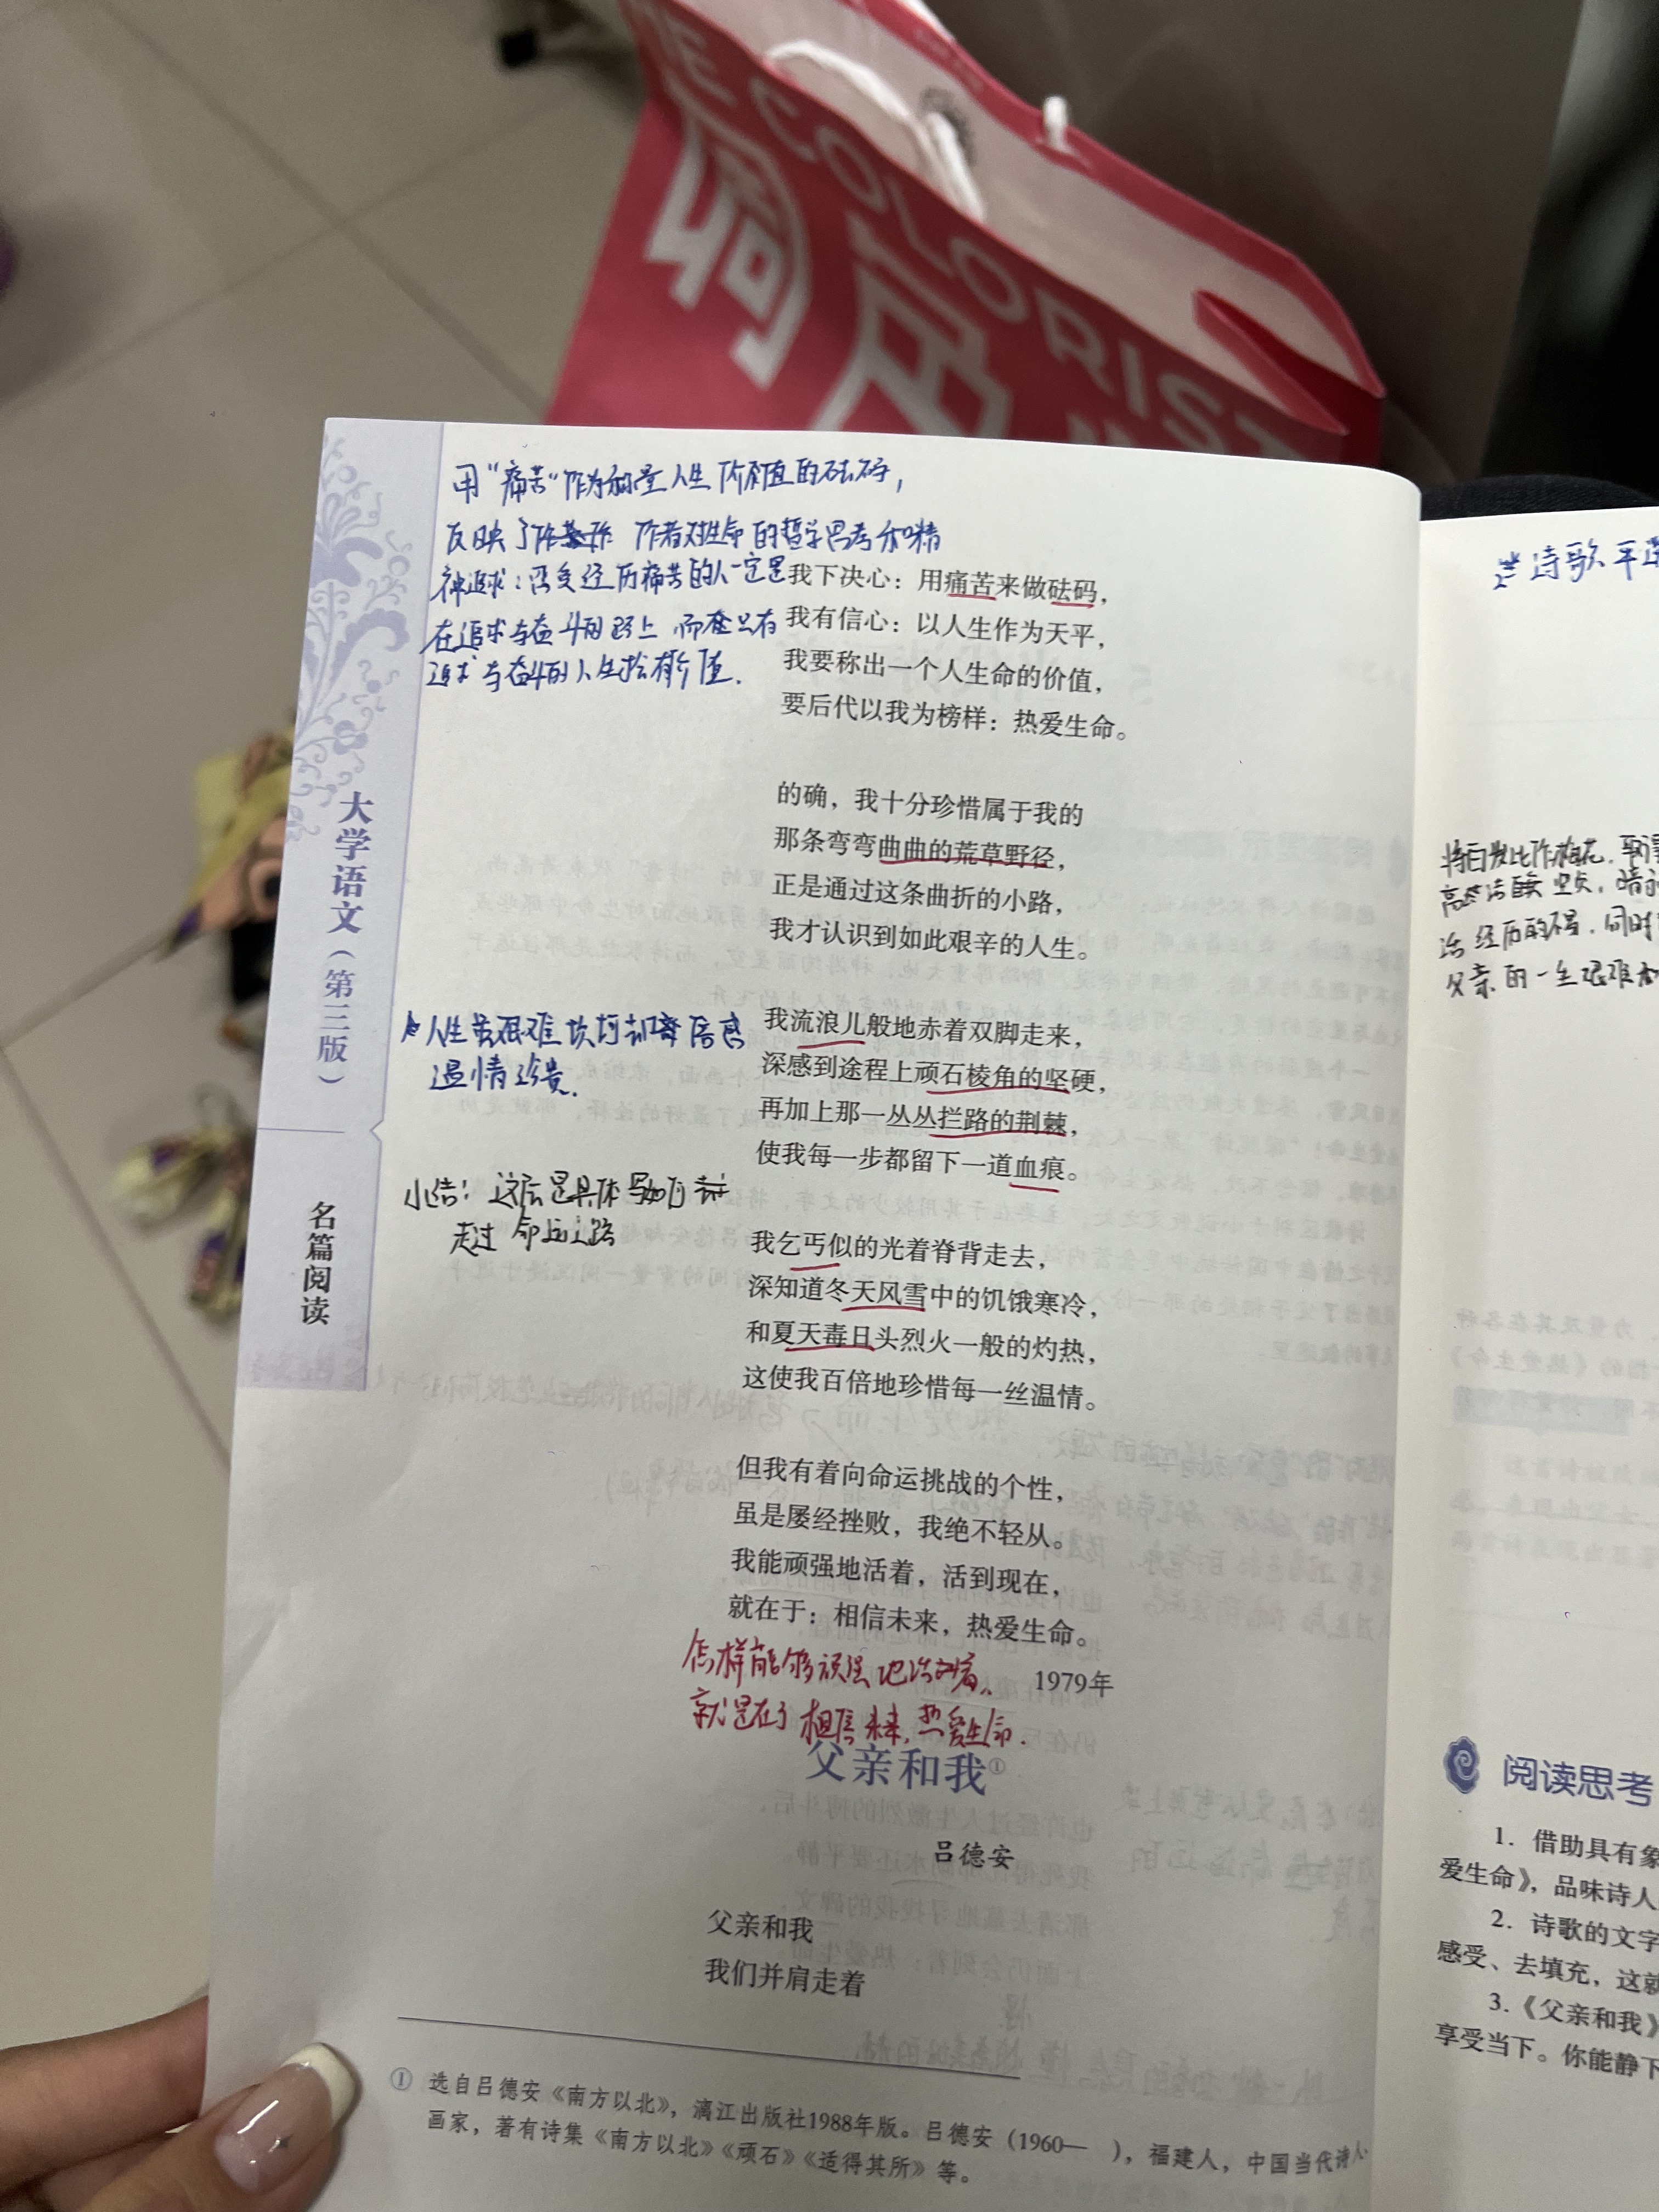 THE COLORIST
调色师
用“痛苦”作为称量人生价值的砝码，
反映了作者对生命的哲学思考和精
神追求：饱受经历痛苦的人一定是
在追求与奋斗的路上 而在只有
追求与奋斗的人生才有价值．
我下决心：用痛苦来做砝码，
我有信心：以人生作为天平，
我要称出一个人生命的价值，
要后代以我为榜样：热爱生命。
的确，我十分珍惜属于我的
那条弯弯曲曲的荒草野径，
正是通过这条曲折的小路，
我才认识到如此艰辛的人生。
人生虽艰难坎坷
温情珍贵．
我流浪儿般地赤着双脚走来，
深感到途程上顽石棱角的坚硬，
再加上那一丛丛拦路的荆棘，
使我每一步都留下一道血痕。
小结：这后是具体写如何
走过 命运之路
我乞丐似的光着脊背走去，
深知道冬天风雪中的饥饿寒冷，
和夏天毒日头烈火一般的灼热，
这使我百倍地珍惜每一丝温情。
但我有着向命运挑战的个性，
虽是屡经挫败，我绝不轻从。
我能顽强地活着，活到现在，
就在于：相信未来，热爱生命。
1979年
怎样能够顽强地活着，
就是在于相信未来，热爱生命．
父亲和我①
吕德安
父亲和我
我们并肩走着
① 选自吕德安《南方以北》，漓江出版社1988年版。吕德安（1960— ），福建人，中国当代诗人、
画家，著有诗集《南方以北》《顽石》《适得其所》等。
大学语文（第三版）
名篇阅读
诗歌
将白发比作梅花．
父亲的一生艰难
阅读思考
1．借助具有象
爱生命》，品味诗人
2．诗歌的文字
感受、去填充，这就
3．《父亲和我》
享受当下。你能静下